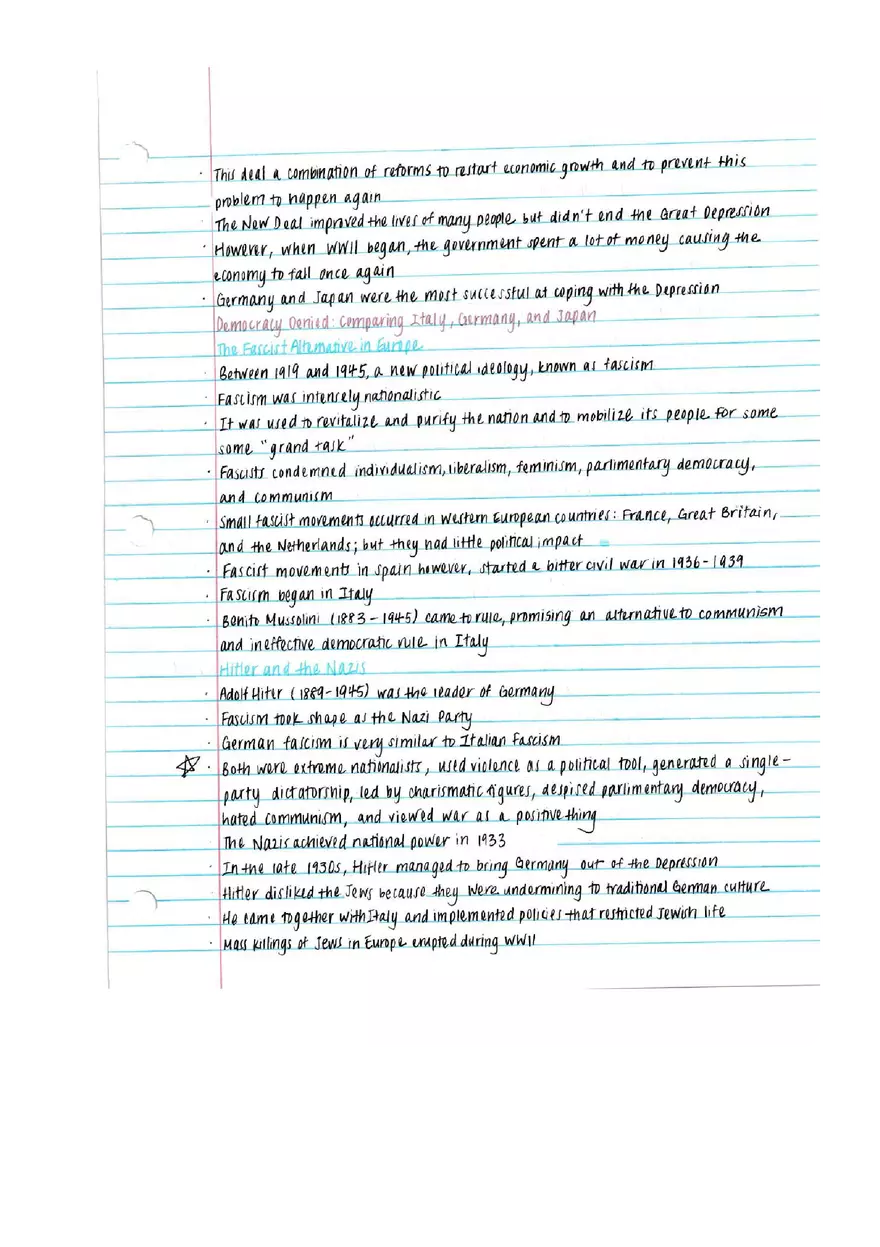 · This deal a combination of reforms to restart economic growth and to prevent this
problem to happen again
· The New Deal improved the lives of many people but didn't end the Great Depression
· However, when WWII began, the government spent a lot of money causing the
economy to fall once again
· Germany and Japan were the most successful at coping with the Depression
Democracy Denied: Comparing Italy, Germany, and Japan
The Fascist Alternative in Europe
· Between 1919 and 1945, a new political ideology, known as fascism
· Fascism was intensely nationalistic
· It was used to revitalize and purify the nation and to mobilize its people for some
some "grand task"
· Fascists condemned individualism, liberalism, feminism, parlimentary democracy,
and communism
· Small fascist movements occurred in Western European countries: France, Great Britain,
and the Netherlands; but they had little political impact
· Fascist movements in Spain however, started a bitter civil war in 1936-1939
· Fascism began in Italy
· Benito Mussolini (1883-1945) came to rule, promising an alternative to communism
and ineffective democratic rule in Italy
Hitler and the Nazis
· Adolf Hiter (1889-1945) was the leader of Germany
· Fascism took shape as the Nazi Party
· German fascism is very similar to Italian Fascism
☆ · Both were extreme nationalists, used violence as a political tool, generated a single-
party dictatorship, led by charismatic figures, despised parlimentary democracy,
hated communism, and viewed war as a positive thing
The Nazis achieved national power in 1933
· In the late 1930s, Hitler managed to bring Germany out of the Depression
· Hitler disliked the Jews because they were undermining to traditional German culture
· He came together with Italy and implemented policies that restricted Jewish life
· Mass killings of Jews in Europe erupted during WWII